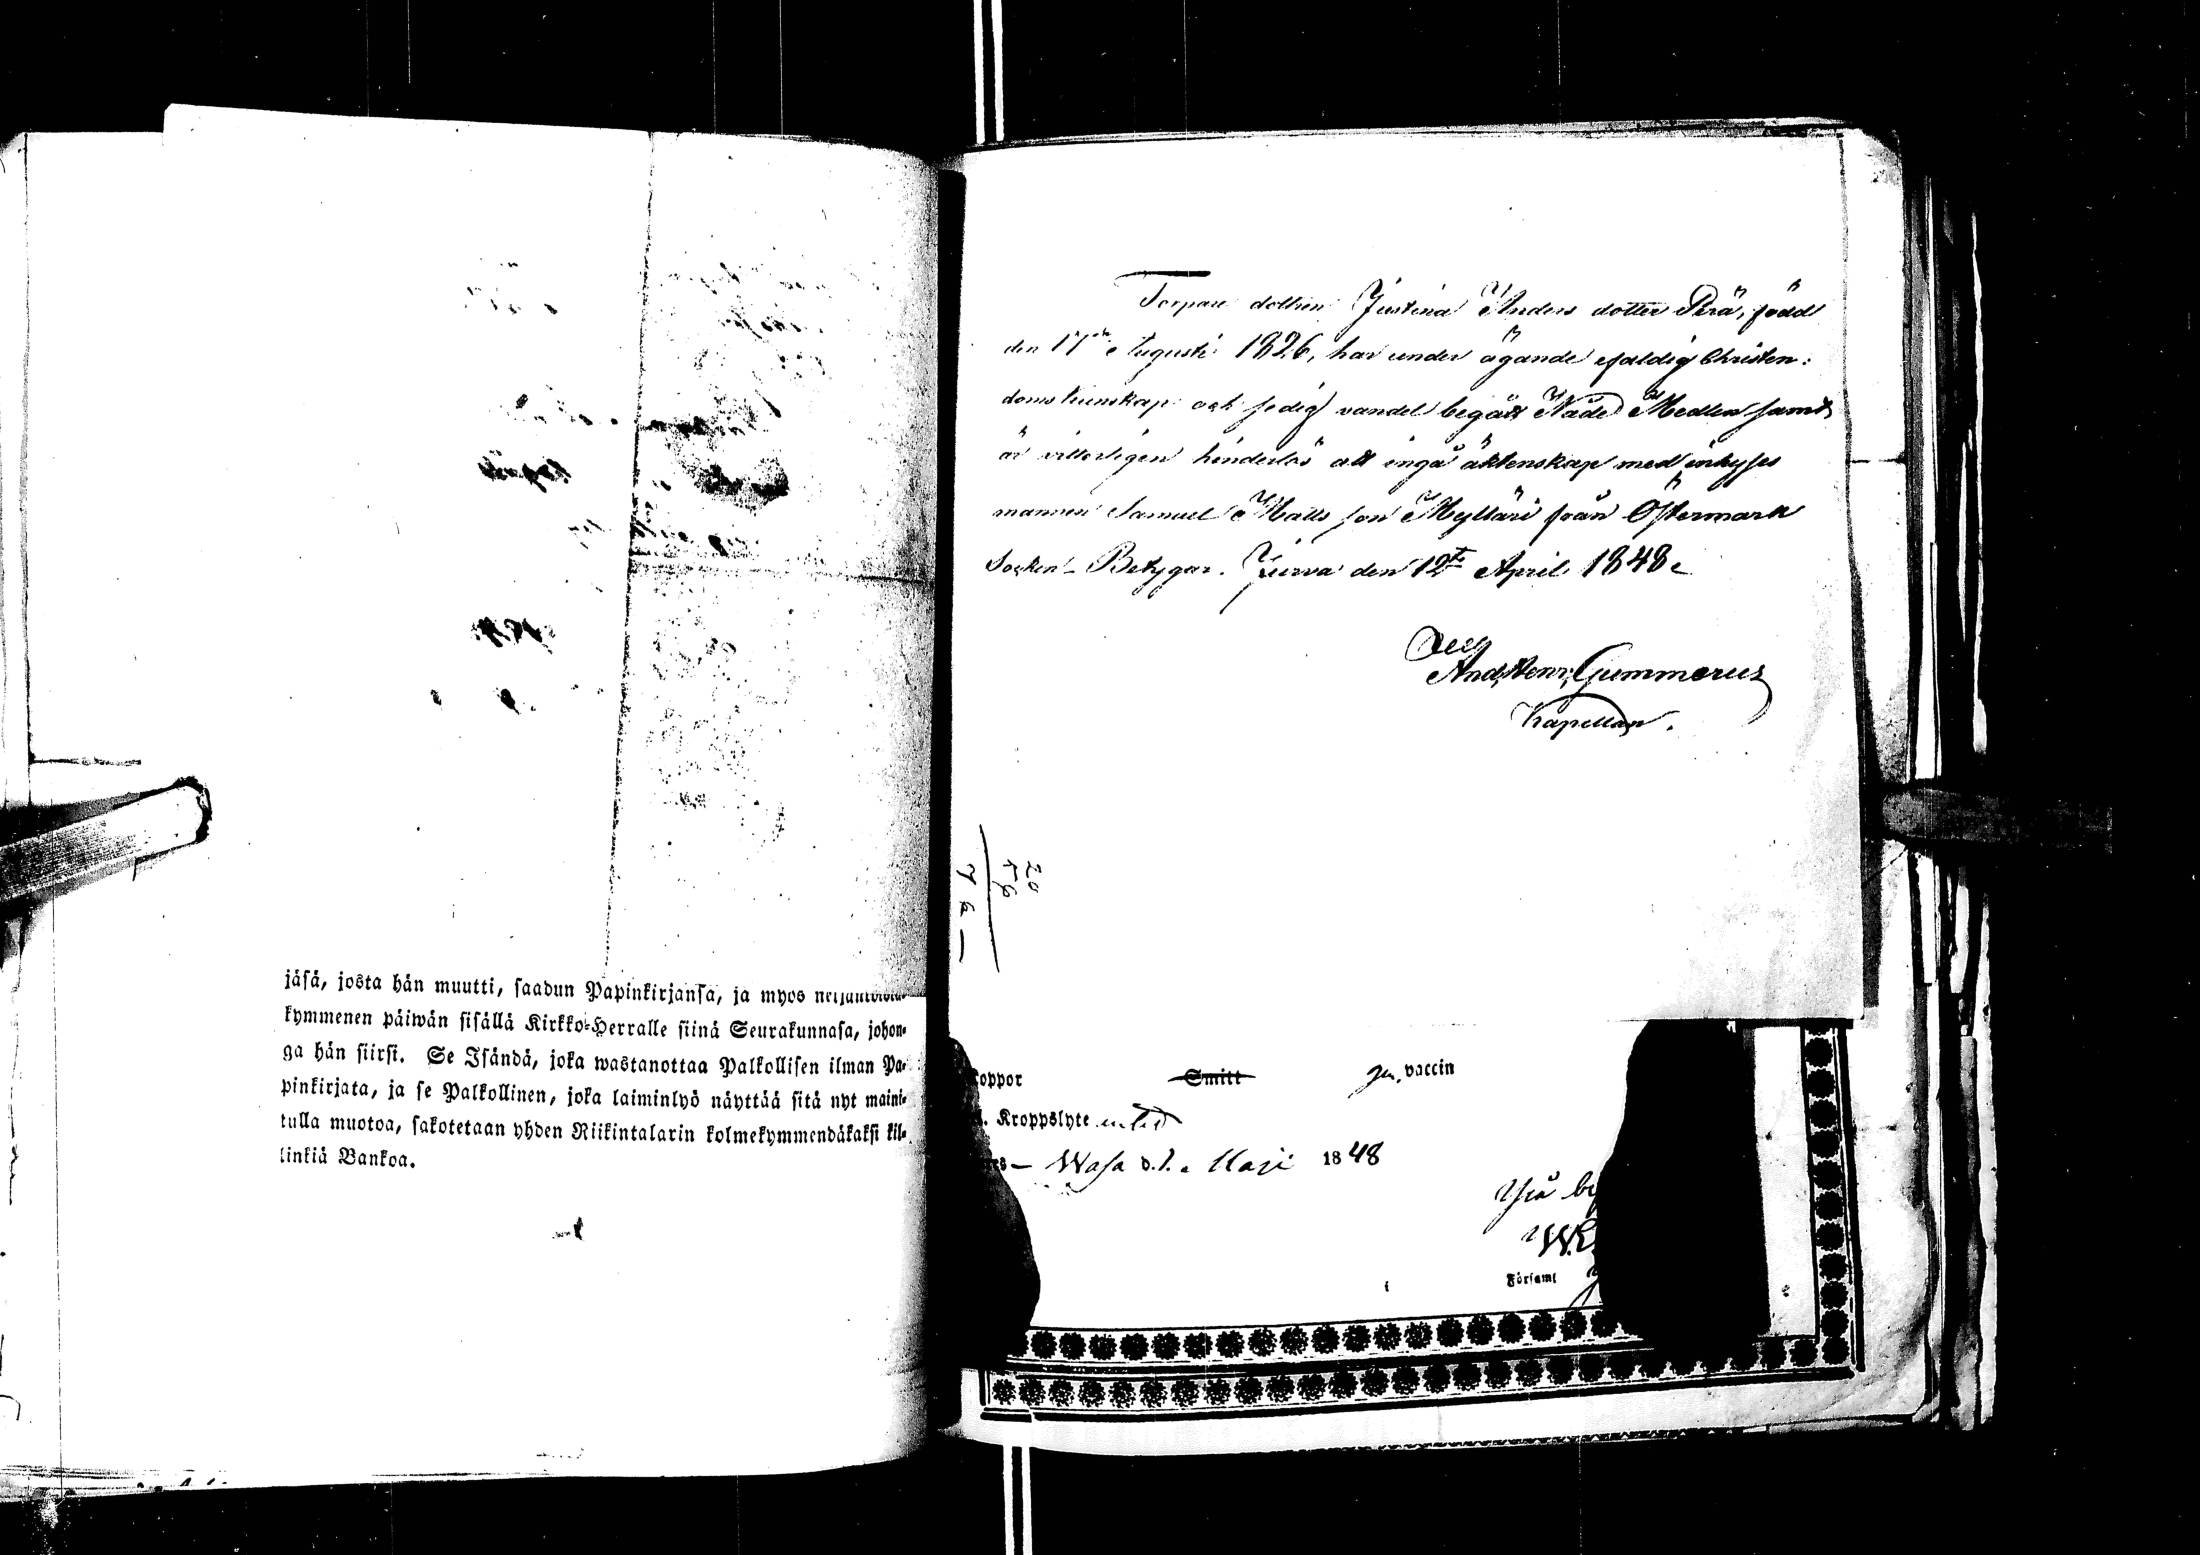 jäsä, josta hän muutti, saadun Papinkirjansa, ja myös
kymmenen päiwän sisällä Kirkko-Herralle siinä Seurakunnasa, johon-
ga hän siirsi. Se Isändä, joka wastanottaa Palkollisen ilman Pa-
pinkirjata, ja se Palkollinen, joka laiminlyö näyttää sitä nyt maini-
tulla muotoa, sakotetaan yhden Riikintalarin kolmekymmendäkaksi kil-
linkiä Bankoa.
Torpare dottren Justina Anders dotter Perä, född
den 17de Augusti 1826, har under ägande Christen:
doms kunskap och sedig vandel begått Nåde Medlen samt
är vitterligen hinderlös att ingå äktenskap med inhyses
mannen Samuel Matts son Mylläri från Östermark
Socken - Betygar. Jurva den 12te April 1848.
And. Henr. Gummerus
Kapellan.
20
56
76 —
oppor Smitt gm. vaccin
. Kroppslyte
es — Wasa d. 1. Maji 1848
W.E.
Församl